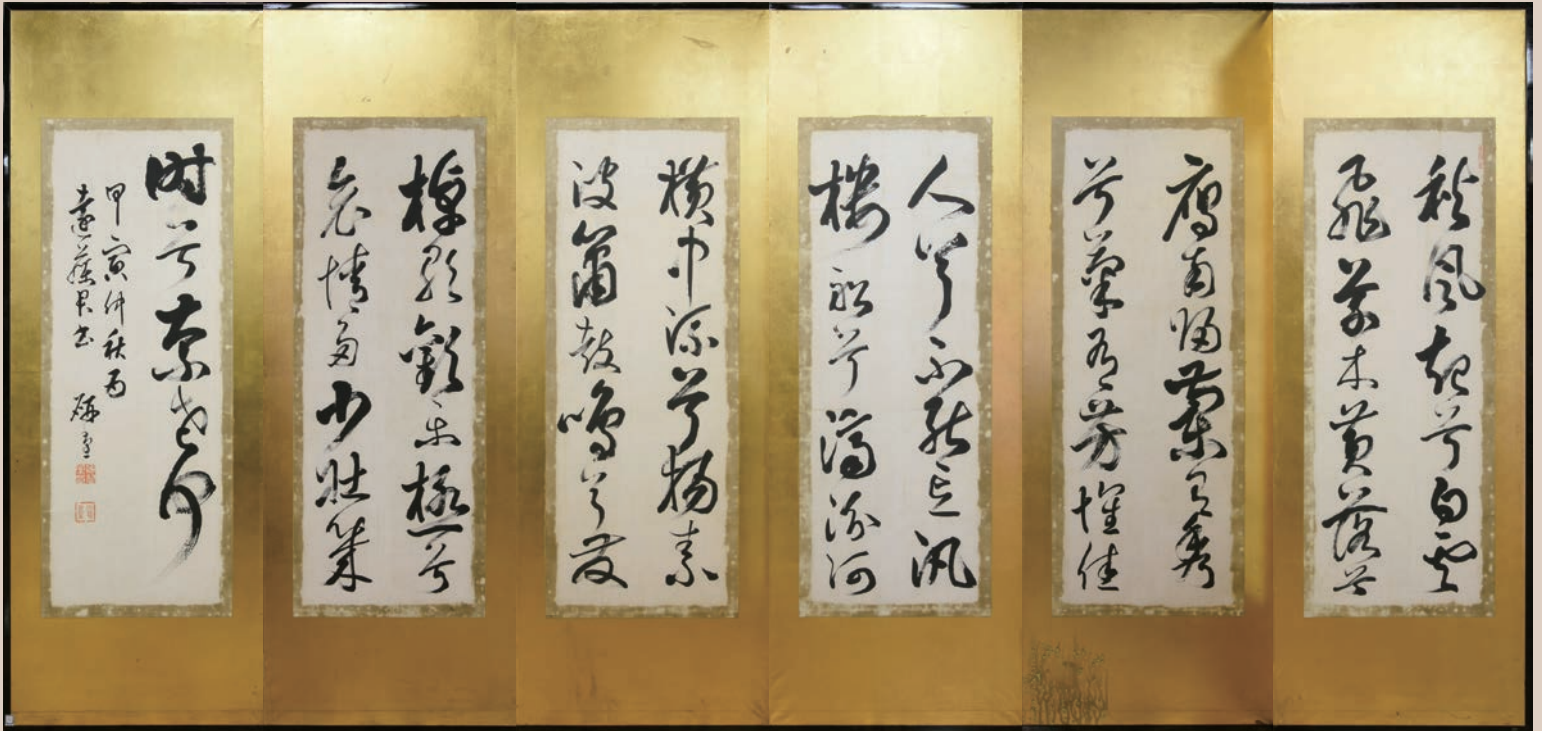 秋風起兮白雲
飛草木黄落兮
鴈南歸蘭有秀
兮菊有芳懷佳
人兮不能忘汎
樓船兮濟汾河
横中流兮揚素
波簫鼓鳴兮發
棹歌歡樂極兮
哀情多少壯幾
時兮奈老何
甲寅仲秋為
遠藤君書